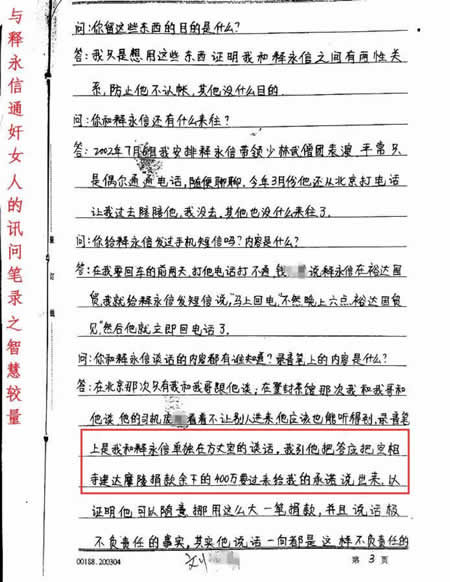 与释永信通奸女人的讯问笔录之智慧较量
问:你留这些东西的目的是什么?
答:我只是想用这些东西证明我和释永信之间有两性关
系,防止他不认帐,其他没什么目的.
问:你和释永信还有什么来往?
答:2002年7月我安排释永信带领少林武僧团表演,平常只
是偶尔通通电话,随便聊聊,今年3月份他还从北京打电话
让我过去陪陪他,我没去,其他也没什么来往了.
问:你给释永信发过手机短信吗?内容是什么?
答:在我要回车的前两天,打他电话打不通,钱 说释永信在裕达国
贸,我就给释永信发短信说,"马上回电,"不然晚上六点裕达国贸
见"然后他就立即回电话了.
问:你和释永信谈话的内容都有谁知道?录音笔上的内容是什么?
答:在北京那次只有我和我哥跟他谈;在登封茶馆那次我和我哥和
他谈,他的司机 看着不让别人进来,他应该也能听得到,录音笔
上是我和释永信单独在方丈室的谈话,我引他把答应把空相
寺建达摩院捐款余下的400万要过来给我的承诺说出来,以
证明他可以随意挪用这么大一笔捐款,并且说话极
不负责任的事实,其实他说话一向都是这样不负责任的
00188.200304
第3页